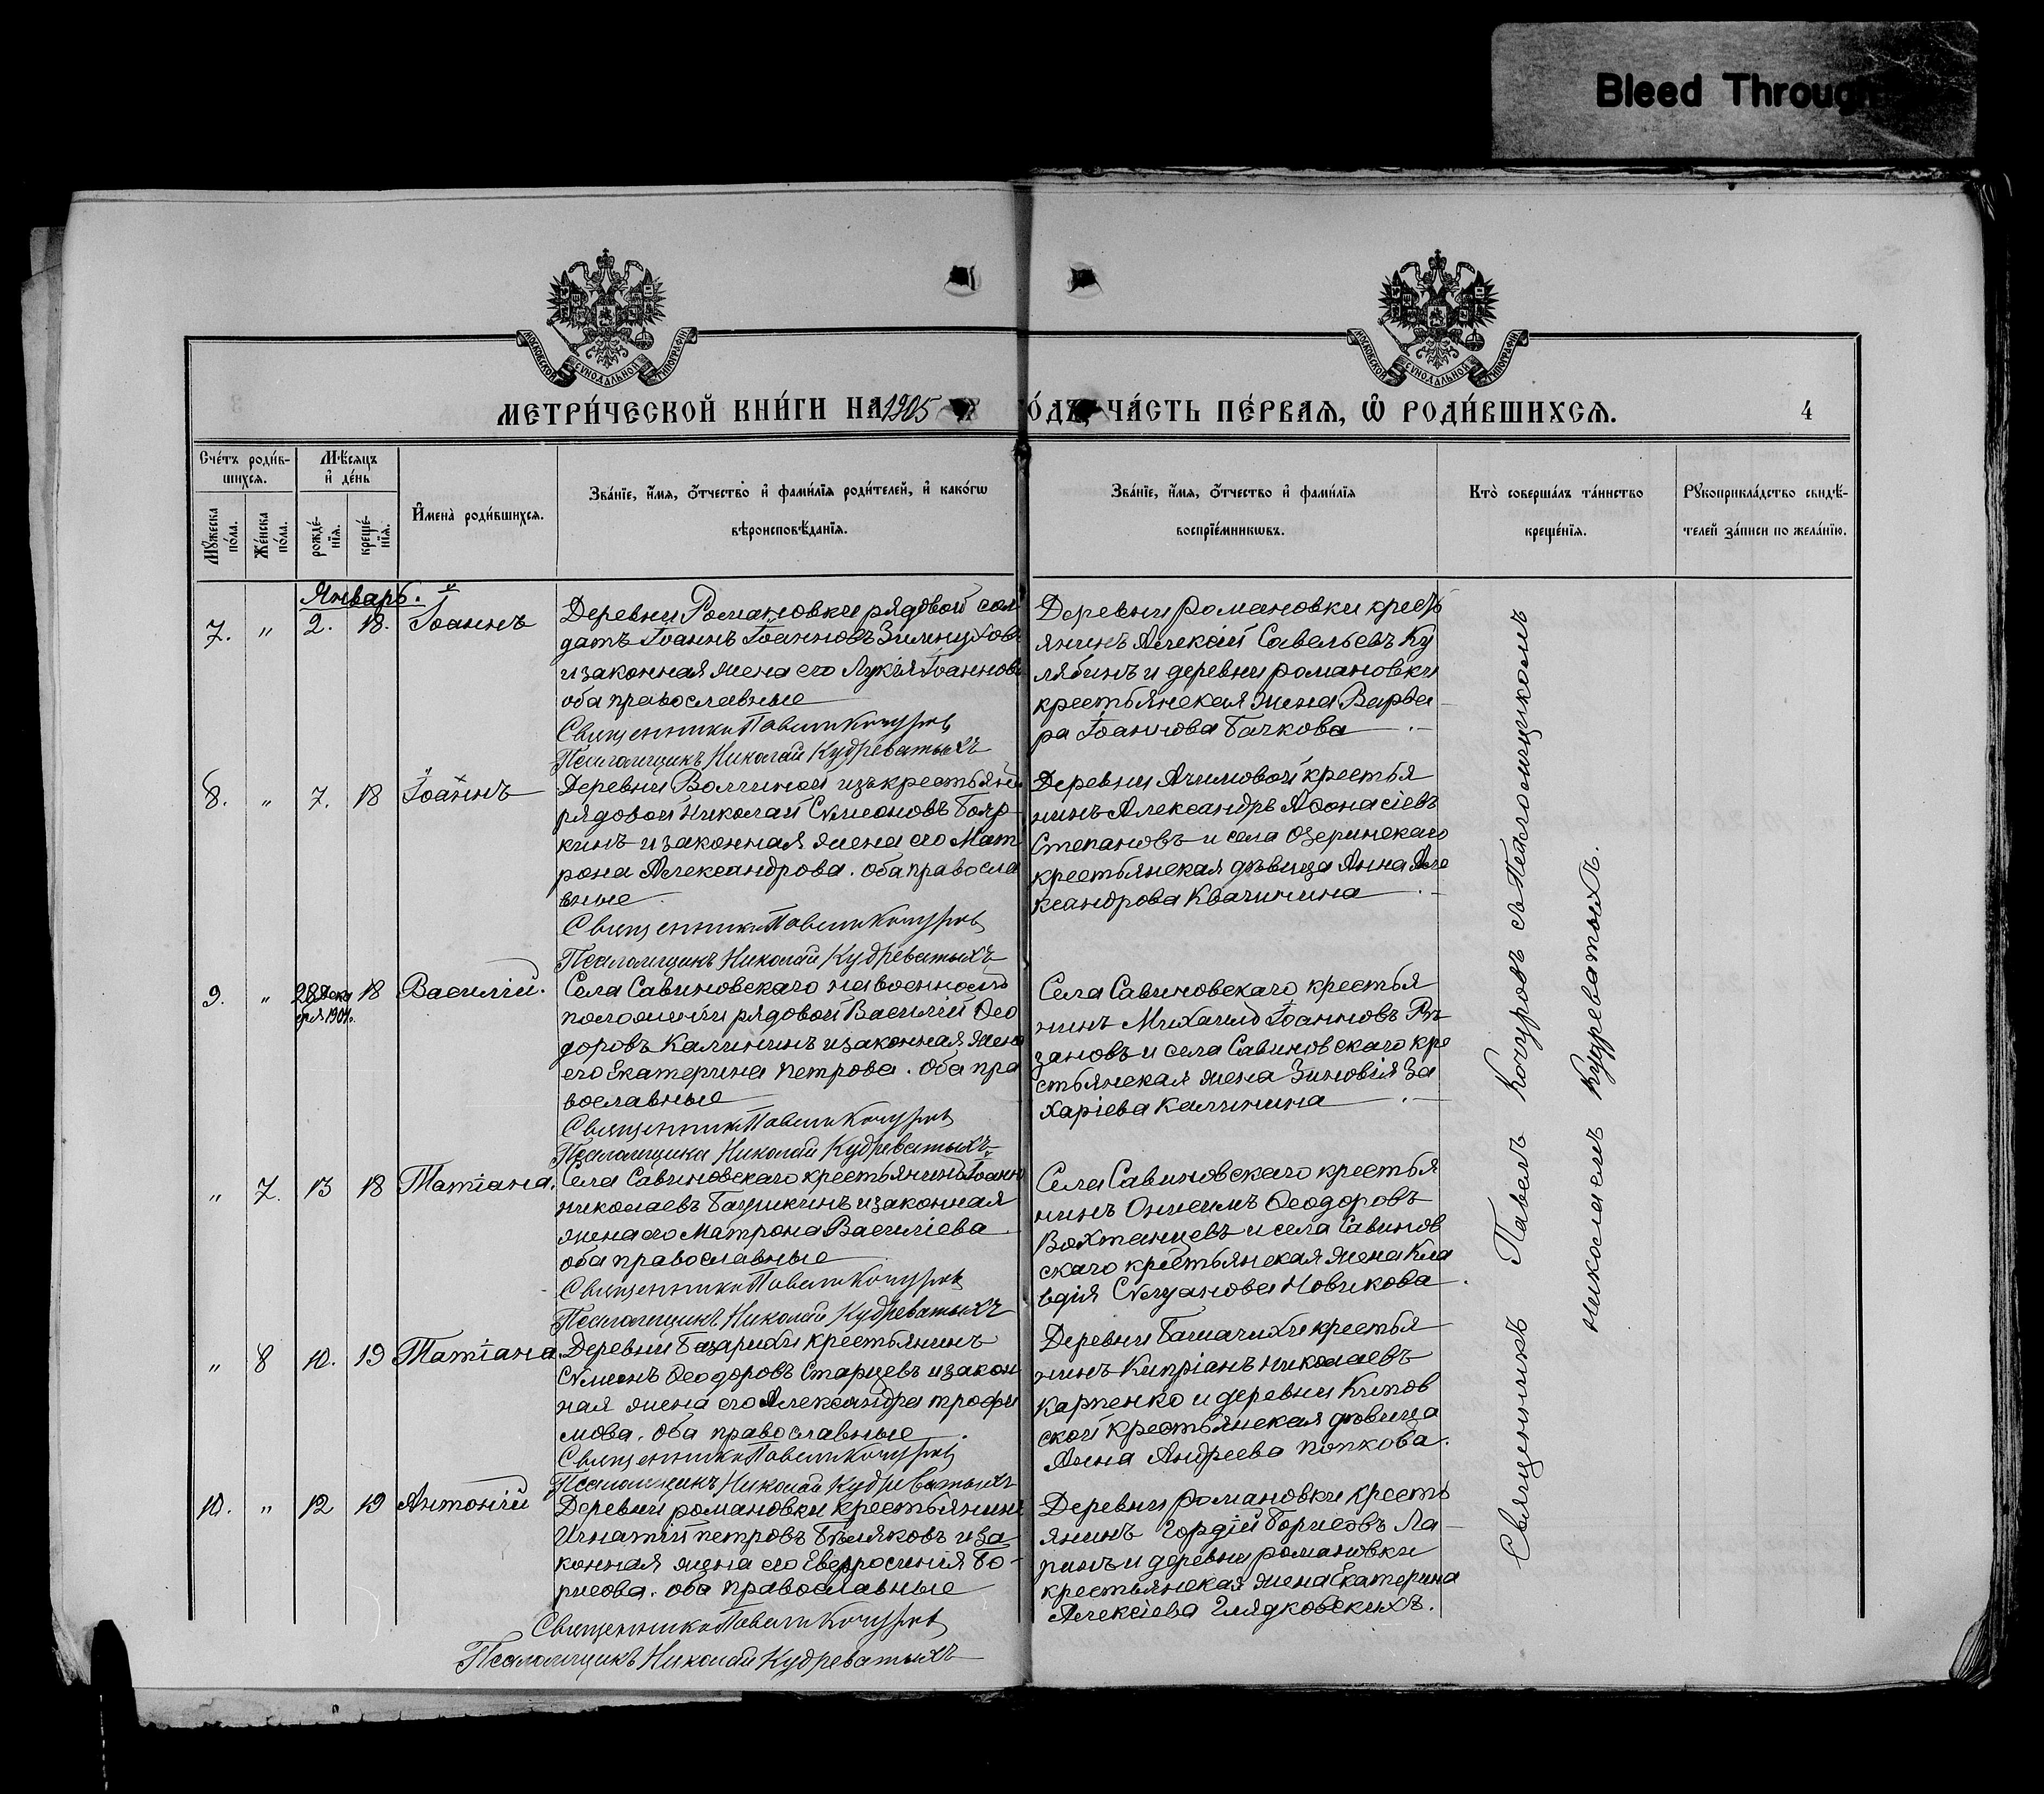 Bleed Through
МОСКОВСКОЙ СѴНОДАЛЬНОЙ ТИПОГРАФІИ
МОСКОВСКОЙ СѴНОДАЛЬНОЙ ТИПОГРАФІИ
МЕТРИ́ЧЕСКОЙ КНИ́ГИ НА 1905 ГО́ДЪ, ЧА́СТЬ ПЕ́РВАѦ, Ѡ҆ РОДИ́ВШИХСѦ. 4
Сче́тъ роди́в-
шихсѧ.
Мѣ́сѧцъ
и҆ де́нь
Мꙋ́жеска
по́ла.
Же́нска
по́ла.
рожде́-
нїѧ.
креще́-
нїѧ.
И҆мена̀ роди́вшихсѧ.
Зва́нїе, и҆́мѧ, ѻ҆́тчество и҆ фами́лїѧ роди́телей, и҆ како́гѡ
вѣроисповѣ́данїѧ.
Зва́нїе, и҆́мѧ, ѻ҆́тчество и҆ фами́лїѧ
воспрїе́мникѡвъ.
Кто̀ соверша́лъ та́инство
креще́нїѧ.
Рꙋкоприкла́дство свидѣ́-
телей за́писи по жела́нїю.
Январь.
7. " 2. 18. Іоаннъ
Деревни Романовки рядовой сол
датъ Іоаннъ Іоанновъ Зимуховъ
и законная жена его Лукія Іоаннова
оба православные
Священникъ Павелъ Кочуровъ
Псаломщикъ Николай Кудреватыхъ
Деревни романовки кресть
янинъ Алексій Савельевъ Ку
лябинъ и деревни романовки
крестьянская жена Варва-
ра Іоаннова Бачкова
8. " 7. 18 Іоаннъ
Деревни Волчиной изъ крестьянъ
рядовой Николай Сѵмеоновъ Бояр-
кинъ и законная жена его Мат
рона Александрова. оба правосла
вные
Священникъ Павелъ Кочуровъ
Псаломщикъ Николай Кудреватыхъ
Деревни Ачимовой крестья
нинъ Александръ Аѳонасіевъ
Степановъ и села Озеринскаго
крестьянская дѣвица Анна Але
ксандрова Квачинина
9. " 28 Дека
бря 1904. 18 Василій.
Села Савиновскаго на военномъ
положеніи рядовой Василій Ѳео
доровъ Калининъ и законная жена
его Екатерина Петрова. Оба пра
вославные
Священникъ Павелъ Кочуровъ
Псаломщикъ Николай Кудреватыхъ
Села Савиновскаго крестья
нинъ Михаилъ Іоанновъ Ря
зановъ и села Савиновскаго кре
стьянская жена Зиновія За
харіева Калинина
" 7. 13 18 Татіана.
Села Савиновскаго крестьянинъ Іоаннъ
николаевъ Бачункинъ и законная
жена его Матрона Василіева
оба православные
Священникъ Павелъ Кочуровъ
Псаломщикъ Николай Кудреватыхъ
Села Савиновскаго крестья
нинъ Онисимъ Ѳеодоровъ
Вохтанцевъ и села Савинов
скаго крестьянская жена Кла
вдія Новикова
" 8 10. 19 Татіана.
Деревни Базарихи крестьянинъ
Сѵмеонъ Ѳеодоровъ Старцевъ и закон
ная жена его Александра трофи
мова. Оба православные
Священникъ Павелъ Кочуровъ
Псаломщикъ Николай Кудреватыхъ
Деревни Башачихи крестья
нинъ Кипріанъ николаевъ
Карпенко и деревни Китов
ской крестьянская дѣвица
Анна Андреева попкова.
10. " 12 19 Антоній
Деревни романовки крестьянинъ
Игнатій петровъ Бѣляковъ и за
конная жена его Евфросинія Бо-
рисова. оба православные
Священникъ Павелъ Кочуровъ
Псаломщикъ Николай Кудреватыхъ
Деревни романовки кресть
янинъ Гордій Борисовъ Ла-
пинъ и деревни романовки
крестьянская жена Екатерина
Алексіева Глядковскихъ.
Священникъ Павелъ Кочуровъ съ Псаломщикомъ
Николаемъ Кудреватыхъ.